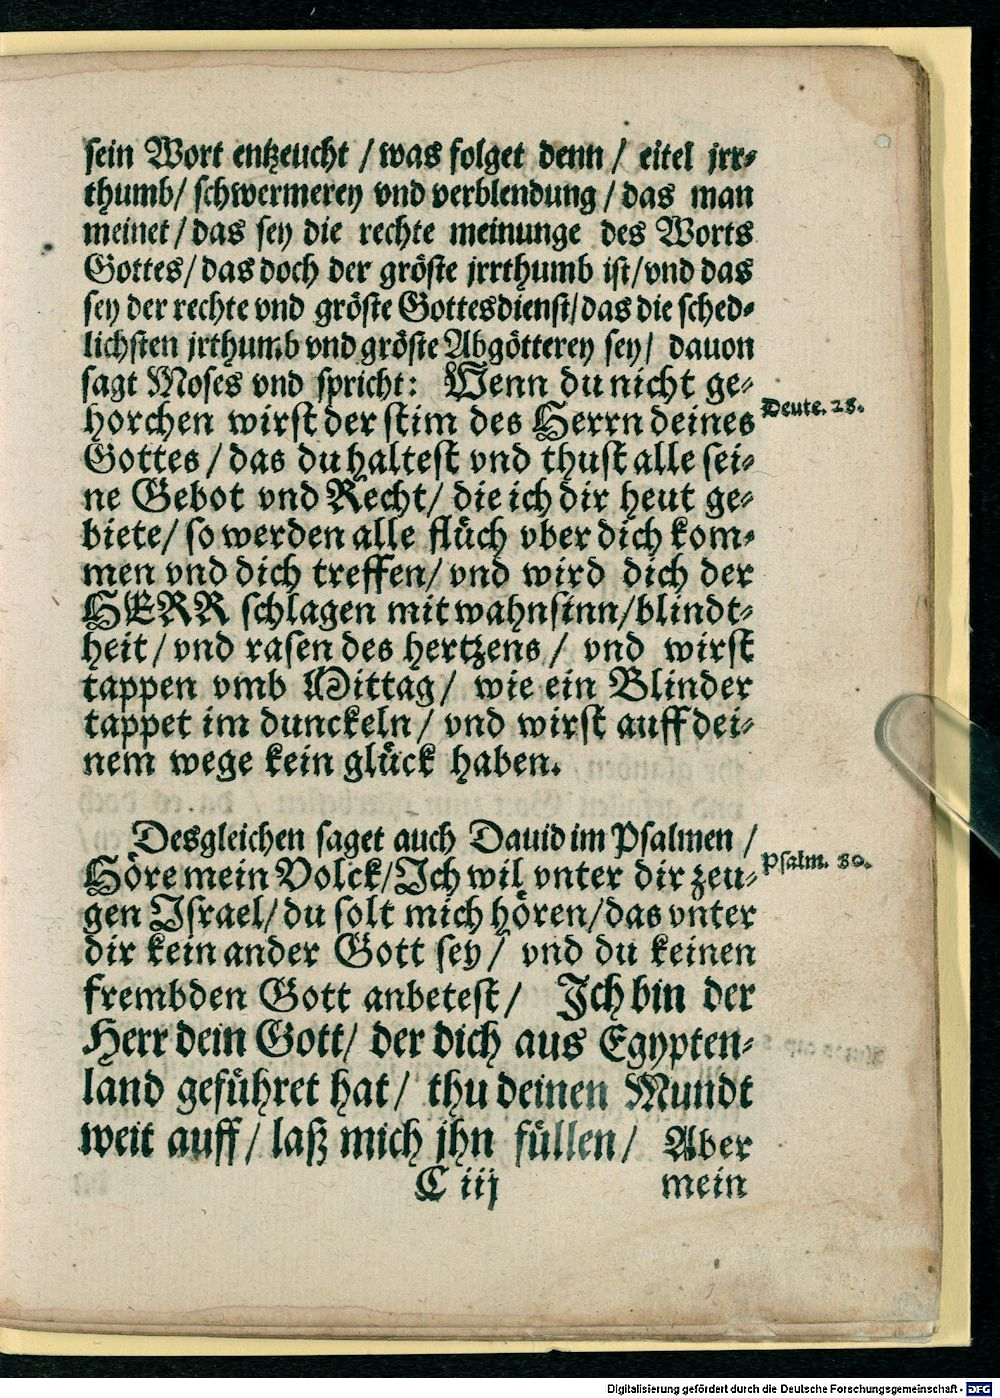 sein Wort entzeucht / was folget denn / eitel jrr⸗
thumb / schwermerey vnd verblendung / das man
meinet / das sey die rechte meinunge des Worts
Gottes / das doch der gröste jrrthumb ist / vnd das
sey der rechte vnd gröste Gottesdienst / das die sched⸗
lichsten jrthumb vnd gröste Abgötterey sey / dauon
sagt Moses vnd spricht: Wenn du nicht ge⸗
horchen wirst der stim des Herrn deines
Deute. 28.
Gottes / das du haltest vnd thust alle sei⸗
ne Gebot vnd Recht / die ich dir heut ge⸗
biete / so werden alle flüch vber dich kom⸗
men vnd dich treffen / vnd wird dich der
HERR schlagen mit wahnsinn / blindt⸗
heit / vnd rasen des hertzens / vnd wirst
tappen vmb Mittag / wie ein Blinder
tappet im dunckeln / vnd wirst auff dei⸗
nem wege kein glück haben.
Desgleichen saget auch Dauid im Psalmen /
Höre mein Volck / Ich wil vnter dir zeu⸗
Psalm. 80.
gen Israel / du solt mich hören / das vnter
dir kein ander Gott sey / vnd du keinen
frembden Gott anbetest / Ich bin der
Herr dein Gott / der dich aus Egypten⸗
land geführet hat / thu deinen Mundt
weit auff / laß mich jhn füllen / Aber
C iij mein
Digitalisierung gefördert durch die Deutsche Forschungsgemeinschaft - DFG